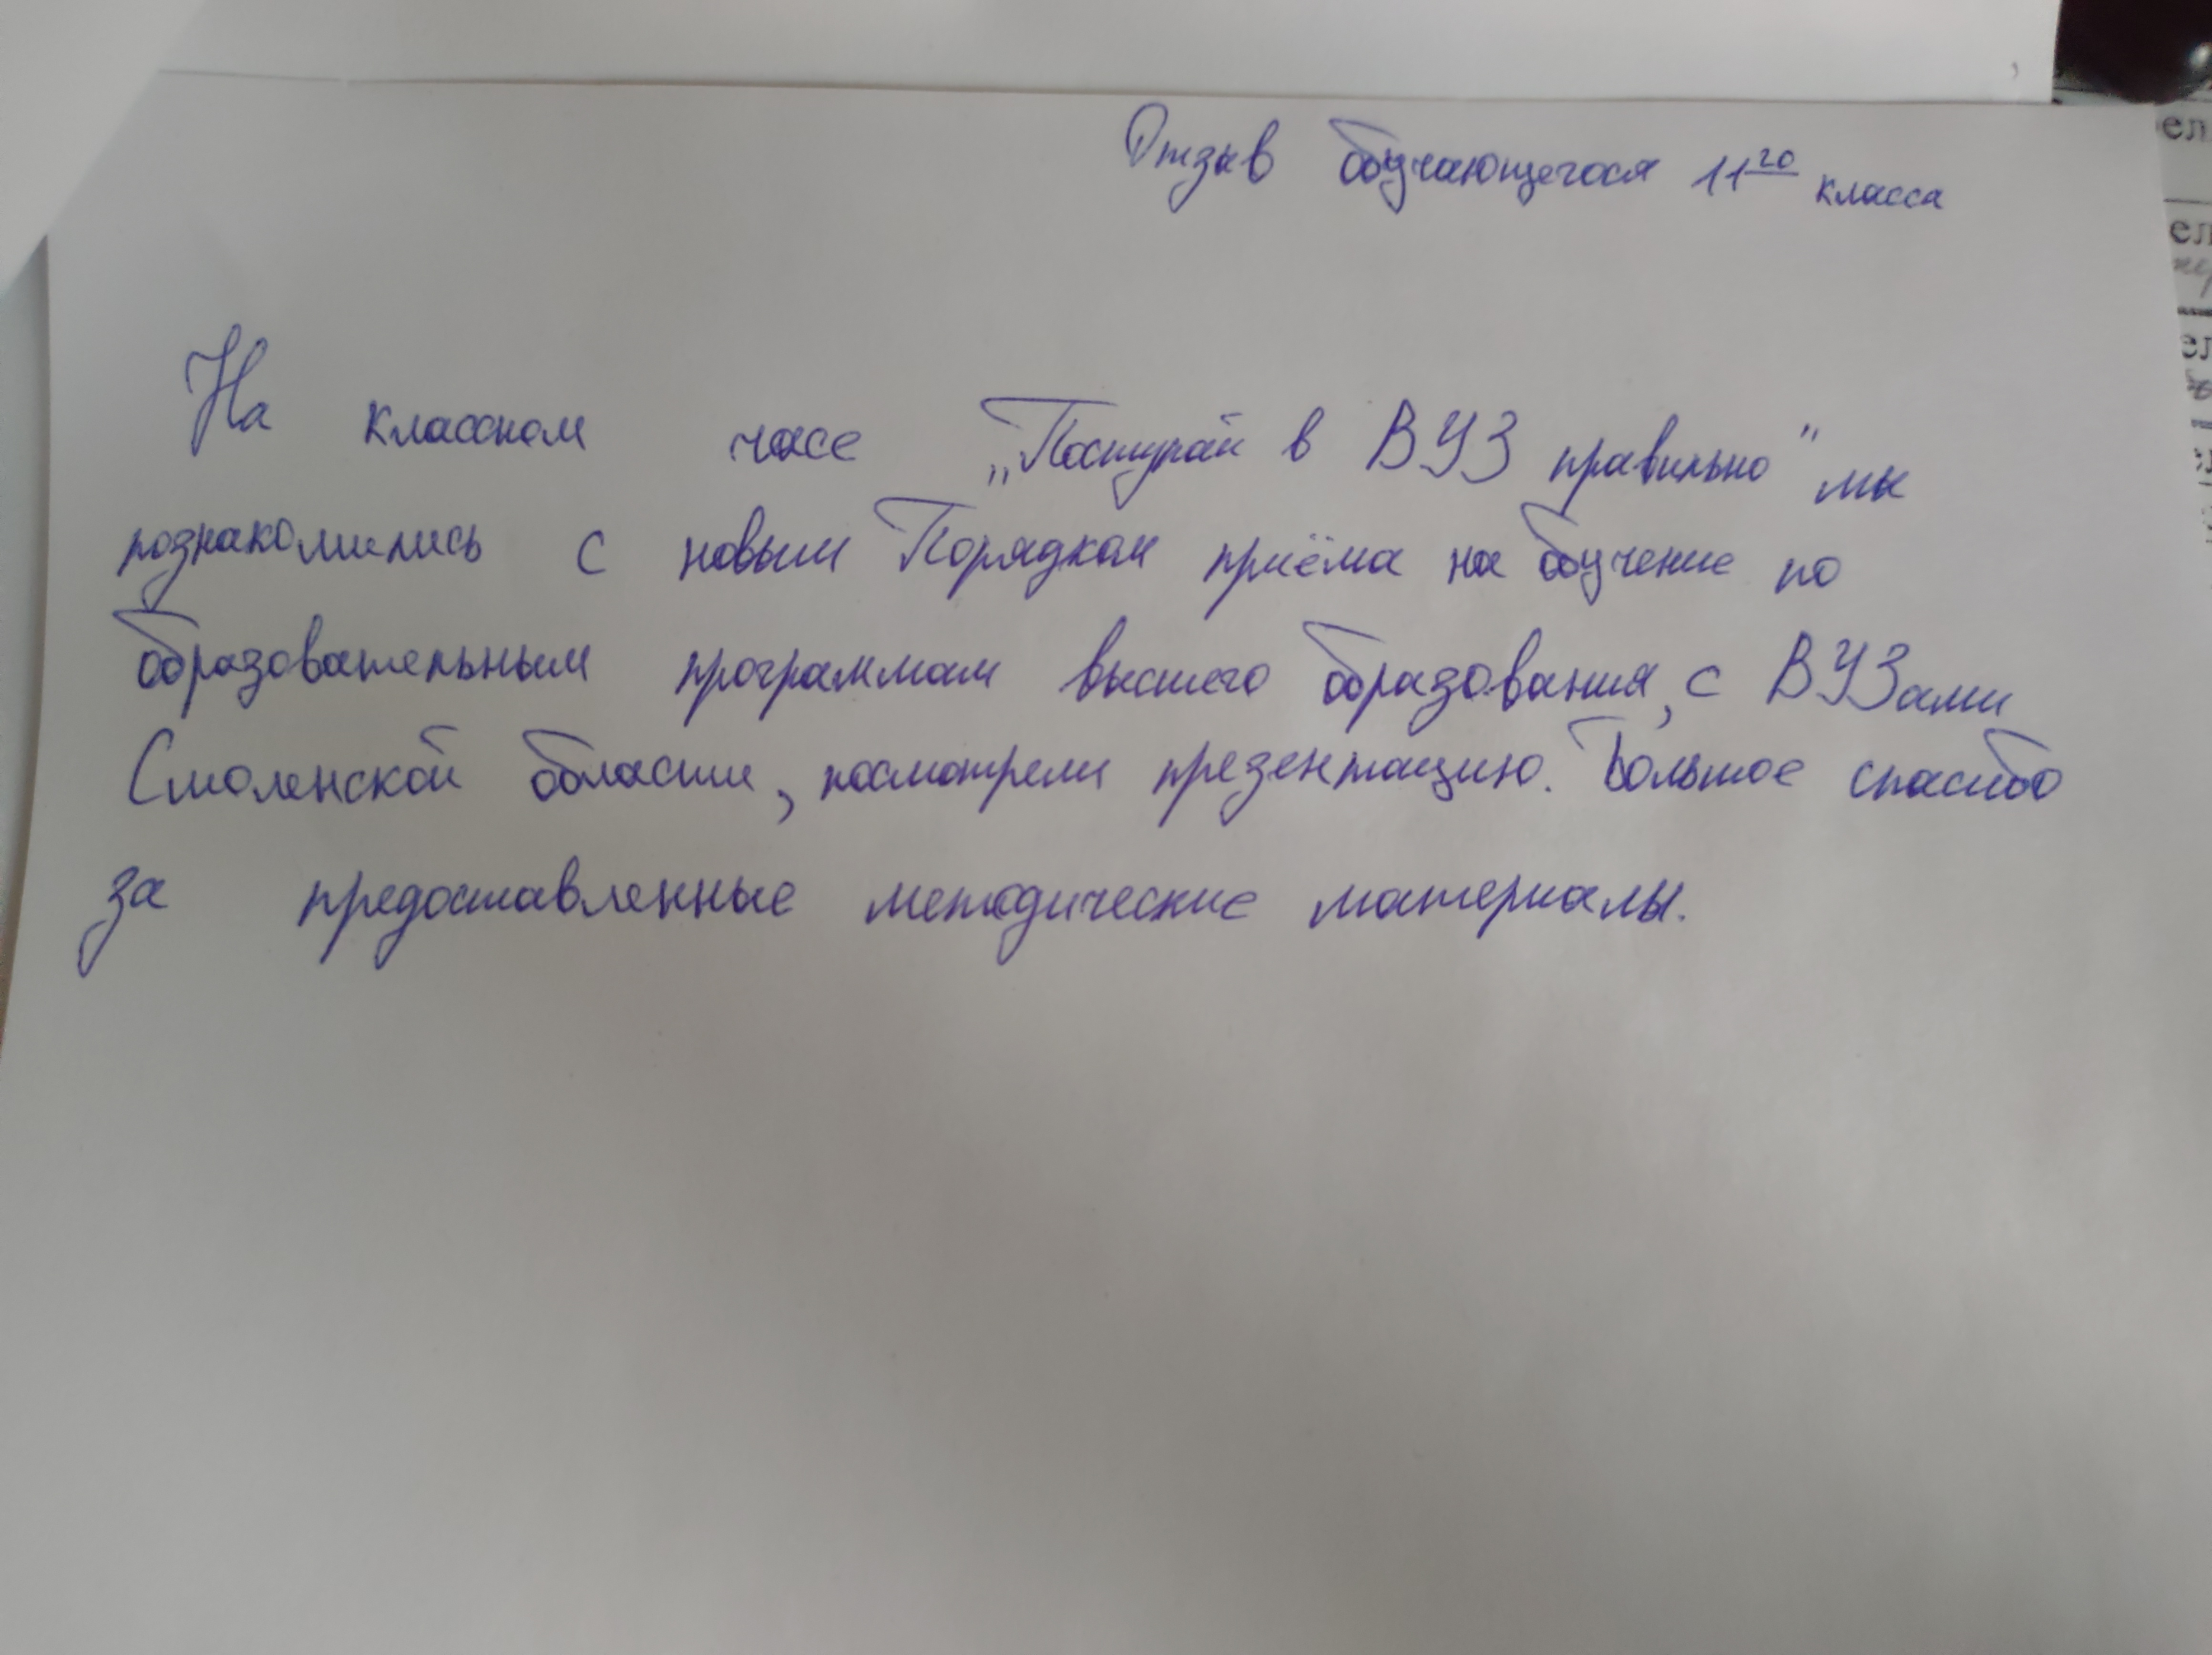 Отзыв обучающегося 11го класса
На классном часе „Поступай в ВУЗ правильно" мы
познакомились с новым Порядком приёма на обучение по
образовательным программам высшего образования, с ВУЗами
Смоленской области, посмотрели презентацию. Большое спасибо
за предоставленные методические материалы.
ел
ел
ел